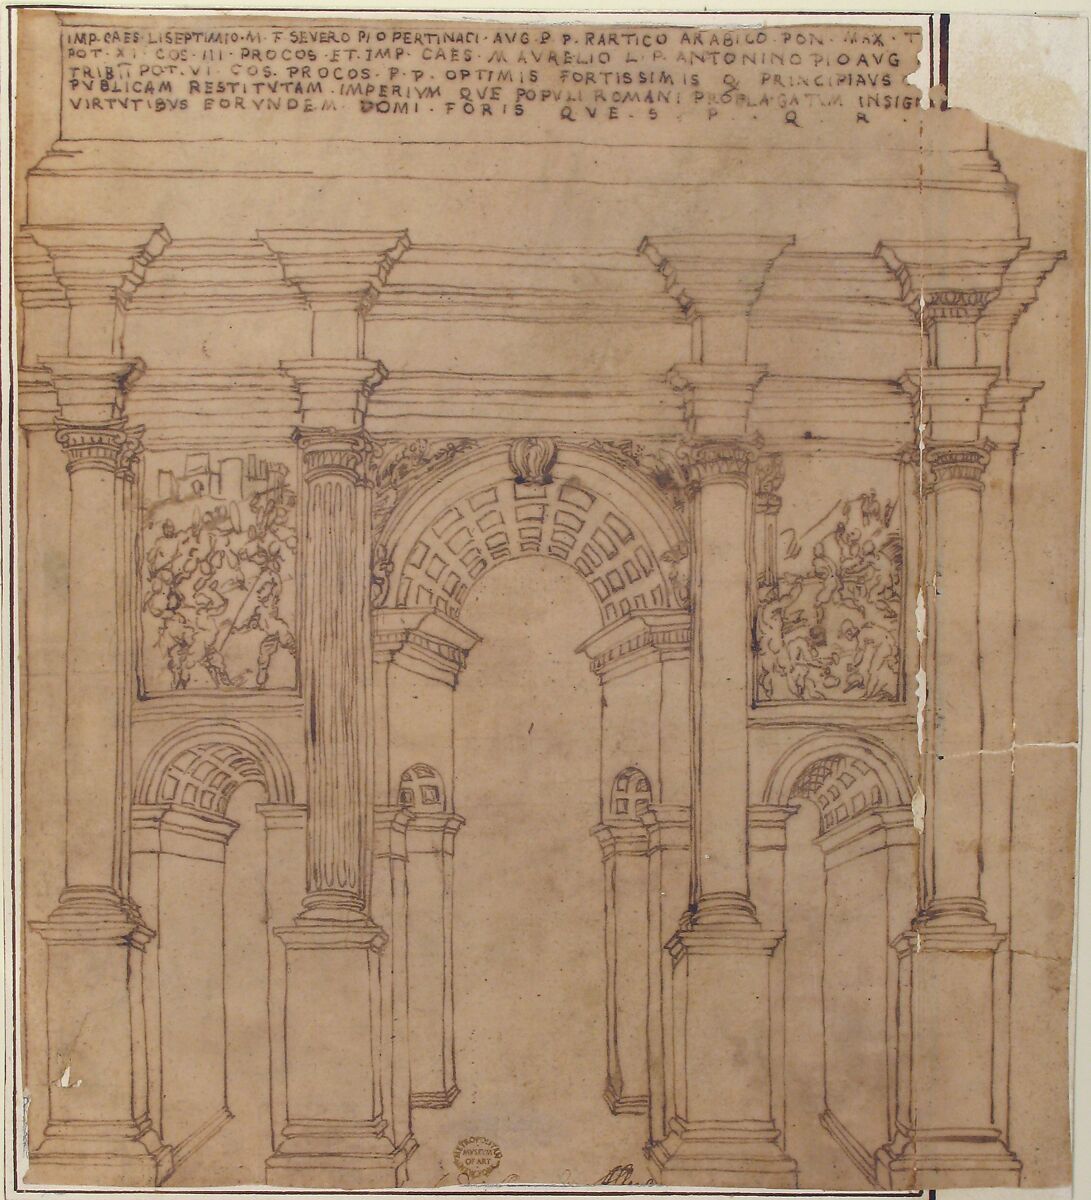 IMP. CAES. LISEPTIMIO. M. F. SEVERO PIO PERTINACI. AVG. P P. RARTICO ARABICO. PON. MAX. T
POT. XI. COS. III. PROCOS. ET. IMP. CAES. M AVRELIO L. P. ANTONINO PIO AVG
TRIB POT. VI. COS. PROCOS. P. P. OPTIMIS FORTISSIMIS Q PRINCIPIAVS
PVBLICAM RESTITVTAM. IMPERIVM QVE POPVLI ROMANI PROPLAGATVM INSIGN
VIRTVTIBVS EORVNDEM DOMI. FORIS QVE. S. P. Q R.
METROPOLITAN
MVSEVM
OF ART